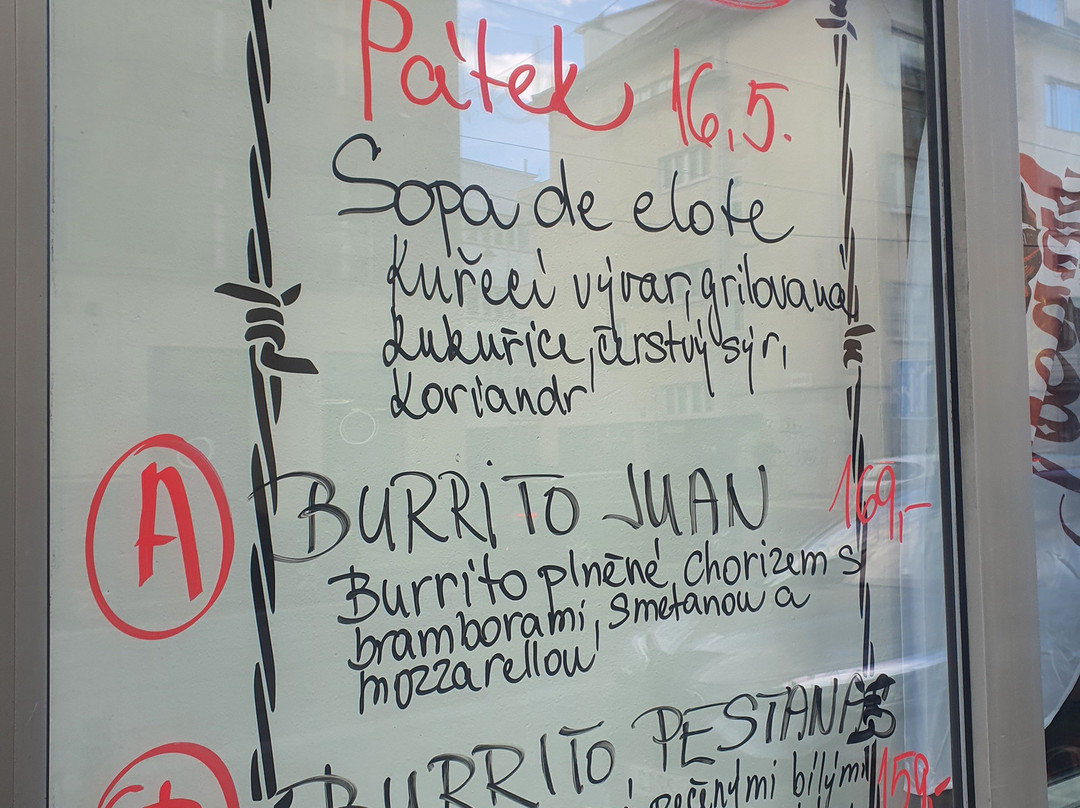 Pátek 16.5.
Sopa de elote
Kuřecí vývar, grilovaná
kukuřice, čerstvý sýr,
koriandr
A
BURRITO JUAN 169,-
Burrito plněné chorizem s
bramborami, smetanou a
mozzarellou
BURRITO PESTAÑAS
pečenými bílými 159,-